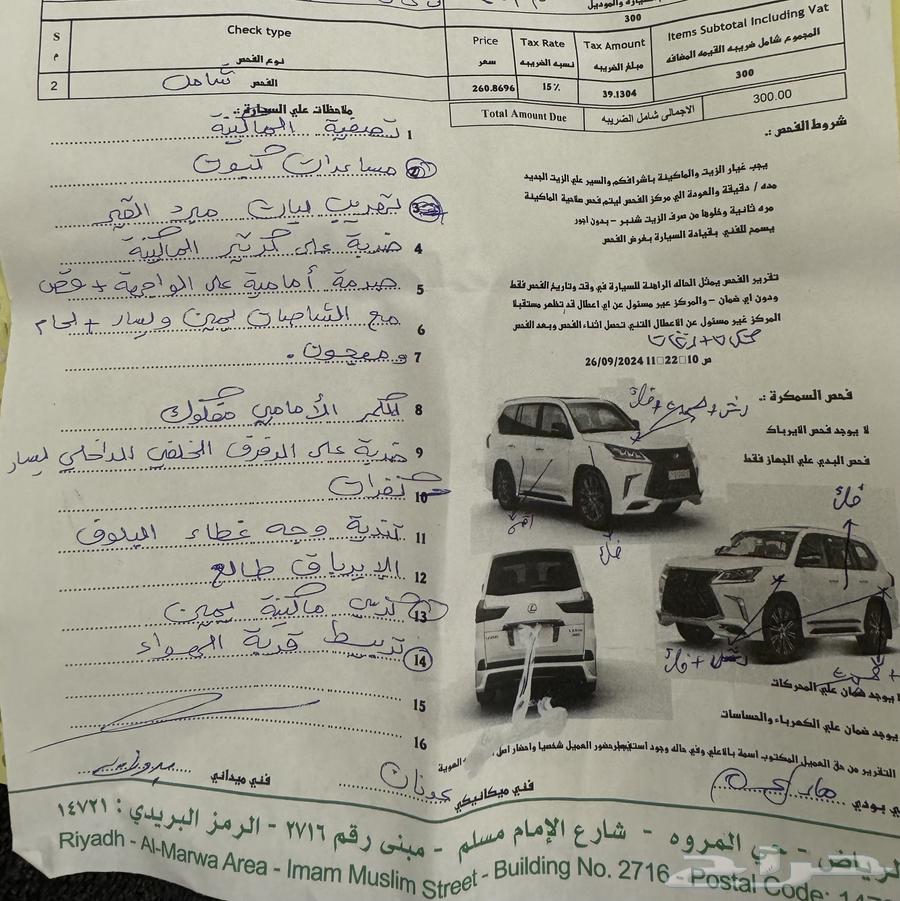 300
S م
Check type نوع الفحص
Price سعر
Tax Rate نسبه الضريبه
Tax Amount مبلغ الضريبه
Items Subtotal Including Vat المجموع شامل ضريبه القيمه المضافه
2
الفحص شامل
260.8696
15%
39.1304
300
Total Amount Due
الاجمالي شامل الضريبه
300.00
ملاحظات علي السيارة :.
1 تصفية الماكينة
2 مساعدات كبوت
3 تهريب ليات مبرد القير
4 ضربة على كرتير الماكينة
5 صدمة أمامية على الواجهة + قص
6 مع الشاصات يمين ويسار + لحام
7 ومعجون .
8 الكمر الأمامي مفكوك
9 ضربة على الرفرف الخلفي الداخلي يسار
10 نقرات
11 تندية وجه غطاء البلوف
12 الإيرباق طالع
13 كرسي ماكينة يمين
14 تربيط قربة الهواء
15
16
شروط الفحص :.
يجب غيار الزيت والماكينة باشرافكم والسير علي الزيت الجديد
مده / دقيقة والعودة الي مركز الفحص ليتم فحص صلاحية الماكينة
مره ثانية وخلوها من صرف الزيت شنبر – بدون اجور
يسمح للفني بقيادة السيارة بغرض الفحص
تقرير الفحص يمثل الحاله الراهنة للسيارة في وقت وتاريخ الفحص فقط
ودون اي ضمان – والمركز غير مسئول عن اي اعطال قد تظهر مستقبلا
المركز غير مسئول عن الاعطال التي تحصل اثناء الفحص وبعد الفحص
26/09/2024 11□22□10 ص
فحص السمكرة :.
لا يوجد فحص الايرباك
فحص البدي علي الجهاز فقط
فك
فك
رش + فك
لا يوجد ضمان علي المحركات
يوجد ضمان علي الكهرباء والحساسات
التقرير من حق العميل المكتوب اسمة بالاعلي وفي حاله وجود
حضور العميل شخصيا واحضار اصل الهوية
فني ميداني
فني ميكانيكي
ي بودي
الرياض - حي المروه - شارع الإمام مسلم - مبنى رقم ٢٧١٦ - الرمز البريدي : ١٤٧٢١
Riyadh - Al-Marwa Area - Imam Muslim Street - Building No. 2716 - Postal Code: 147
حراج